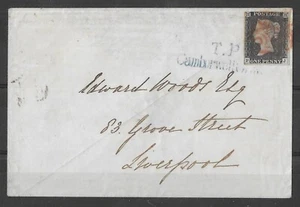 POSTAGE
T.P
ONE PENNY
Edward Woods Esq
83. Grove Street
Liverpool